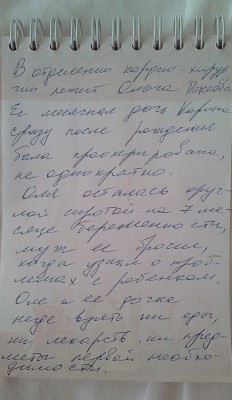 В отделении кардио-хирур
гии лежит Ольга
Ее месячная дочь Карина
сразу после рождение
была прооперирована,
не однократно.
Оля осталась круг
лой сиротой на 7 ме-
сяце беременности,
муж ее бросил,
когда узнал о проб
лемах с ребенком.
Оле и ее дочке
негде взять ни еды,
ни лекарств, ни пред-
меты первой необхо-
димости.